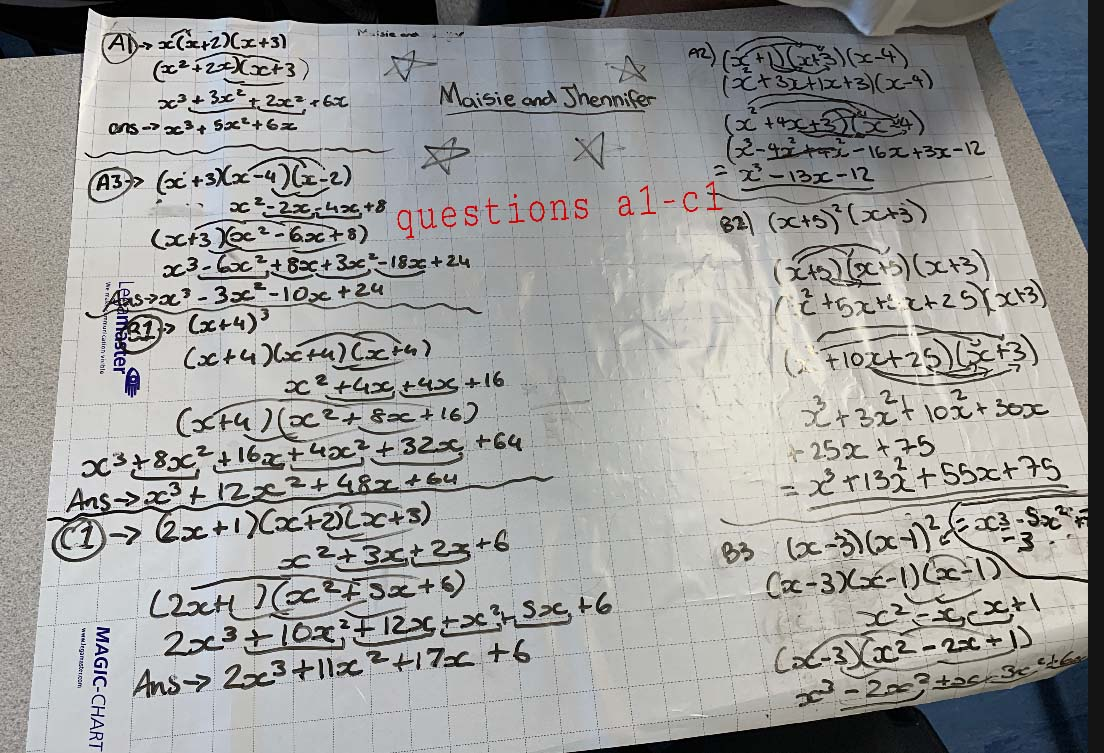 A1 → x(x+2)(x+3)
(x²+2x)(x+3)
x³+3x²+2x²+6x
ans → x³+5x²+6x
Maisie and Jhennifer
A3 → (x+3)(x-4)(x-2)
x²-2x-4x+8
(x+3)(x²-6x+8)
x³-6x²+8x+3x²-18x+24
Ans → x³-3x²-10x+24
questions a1-c1
B1 → (x+4)³
(x+4)(x+4)(x+4)
x²+4x+4x+16
(x+4)(x²+8x+16)
x³+8x²+16x+4x²+32x+64
Ans → x³+12x²+48x+64
C1 → (2x+1)(x+2)(x+3)
x²+3x+2x+6
(2x+1)(x²+5x+6)
2x³+10x²+12x+x²+5x+6
Ans → 2x³+11x²+17x+6
A2) (x+1)(x+3)(x-4)
(x²+3x+1x+3)(x-4)
(x²+4x+3)(x-4)
(x³-4x²+4x²-16x+3x-12
= x³-13x-12
B2) (x+5)²(x+3)
(x+5)(x+5)(x+3)
+5x+ x+25)(x+3)
+10x+25)(x+3)
x³+3x²+10x²+30x
+25x+75
= x³+13x²+55x+75
B3 (x-3)(x-1)²
= x³-5x²+
-3
(x-3)(x-1)(x-1)
x²-x-x+1
(x-3)(x²-2x+1)
x³-2x²+x-3x²+6x
Legamaster
MAGIC-CHART
www.legamaster.com